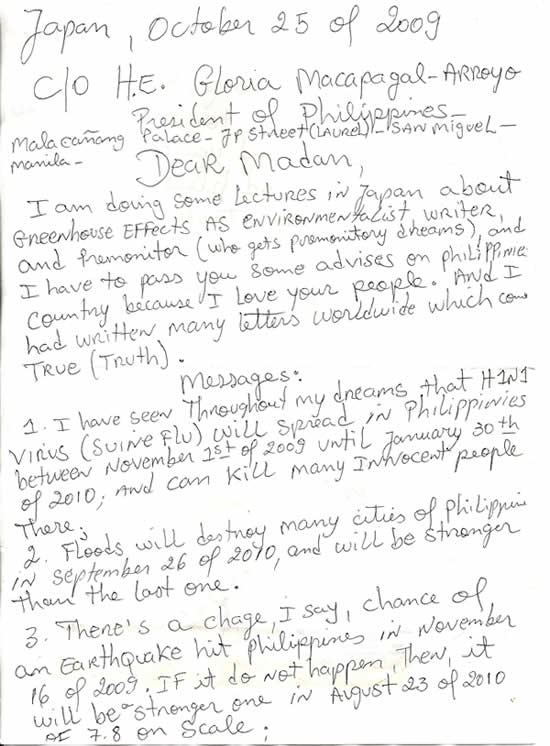 Japan, October 25 of 2009
C/O H.E. Gloria Macapagal-Arroyo
President of Philippines-
Malacañang Palace- JP Street (LAUREL)- SAN Miguel-
Manila-
Dear Madan,
I am doing some Lectures in Japan about
Greenhouse EFFECTS AS ENVIRONMENTALIST WRITER,
and Premonitor (who gets premonitory dreams), and
I have to pass you some advises on philippinie
Country because I Love your people. And I
had written many letters worldwide which come
TRUE (TRUTH).
Messages:
1. I have seen Throughout my dreams that H1N1
Virius (SUINE FLU) will spread in Philippinies
between November 1st of 2009 until January 30th
of 2010; AND can kill many INNOCENT people
There;
2. Floods will destroy many cities of Philippini
in September 26 of 2010, and will be stronger
than the last one.
3. There's a chage, I say, chance of
an Earthquake hit philippines in November
16 of 2009. IF it do not happen, Then, it
will be stronger one in August 23 of 2010
of 7.8 on Scale;